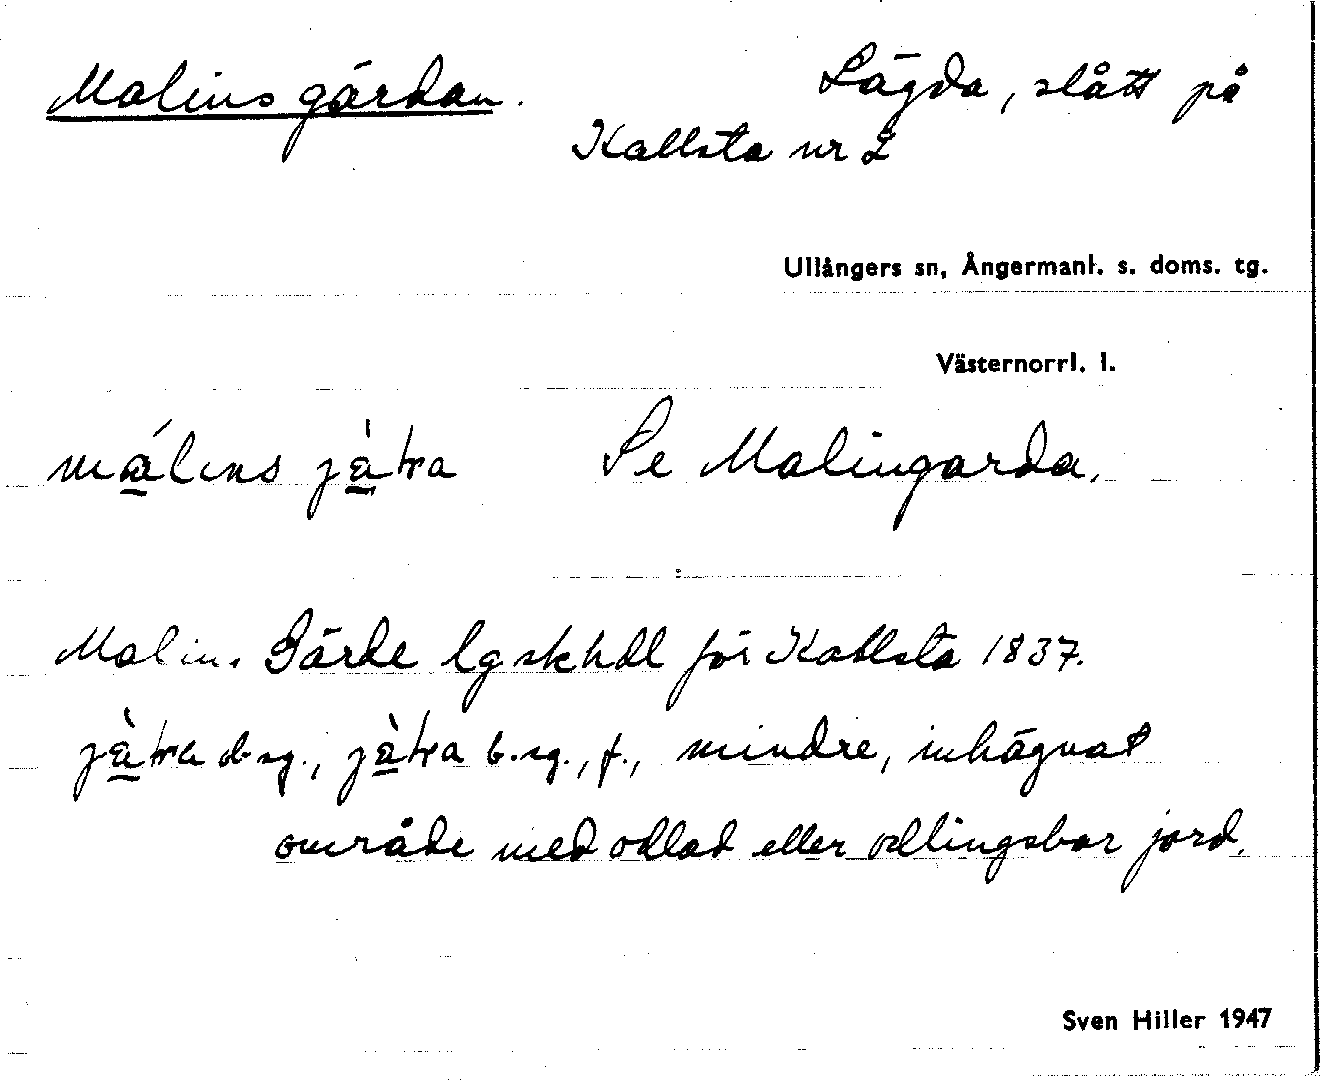 Malins gärdan. Lägda, slått på
Kallsta nr 2
Ullångers sn, Ångermanl. s. doms. tg.
Västernorrl. l.
Se Malingarda.
Malins Gärde lgskhdl för Kallsta 1837.
d. sg., b. sg., f., mindre, inhägnat
område med odlad eller odlingsbar jord.
Sven Hiller 1947